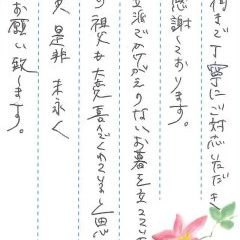 まで丁寧にご対応いただき
感謝しております。
立派でかけがえのないお墓を立てて
祖父も大変喜んでくれていると思
是非 末永く
お願い致します。